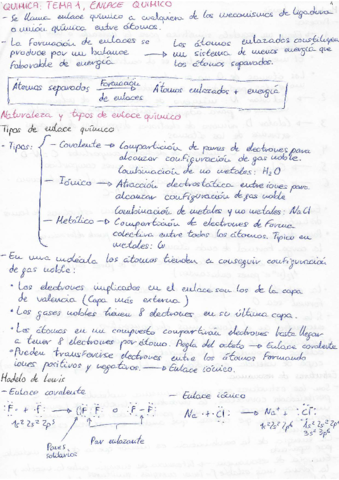 QUÍMICA: TEMA 1, ENLACE QUÍMICO
- Se llama enlace químico a cualquiera de los mecanismos de ligadura
o unión química entre átomos.
- La Formación de enlaces se produce por un balance Favorable de energía. → Los átomos enlazados constituyen un sistema de menor energía que los átomos separados.
Átomos separados Formación de enlaces → Átomos enlazados + energía
Naturaleza y tipos de enlace químico
Tipos de enlace químico
• Tipos:
- Covalente → Compartición de pares de electrones para
alcanzar configuración de gas noble.
Combinación de no metales: H2O
- Iónico → Atracción electrostática entre iones para
alcanzar configuración de gas noble
Combinación de metales y no metales: NaCl
- Metálico → Compartición de electrones de Forma
colectiva entre todos los átomos. Típico en
metales:
- En una molécula los átomos tienden a conseguir configuración
de gas noble:
• Los electrones implicados en el enlace son los de la capa
de valencia (Capa más externa)
• Los gases nobles tienen 8 electrones en su última capa.
• Los átomos en un compuesto compartirán electrones hasta llegar
a tener 8 electrones por átomo. Regla del octeto → Enlace covalente
• Pueden transferirse electrones entre los átomos Formando
iones positivos y negativos. → Enlace iónico.
Modelo de Lewis
- Enlace covalente
- Enlace iónico
:F· + ·F: → :F F: o :F-F:
Na· + ·Cl: → Na+ + :Cl:-
1s2 2s2 2p5
1s2 2s2 2p6
1s2 2s2 2p6
3s2 3p6
Pares solitarios
Par enlazante